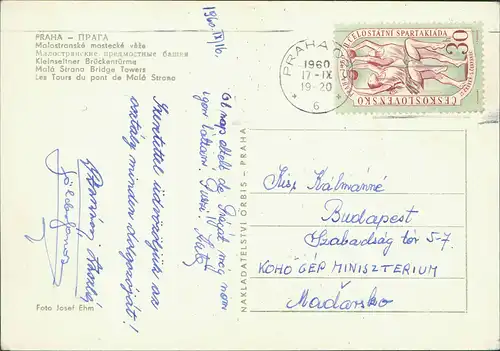 PRAHA - ПРАГА
Malostranské mostecké věže
Малостранские предмостные башни
Kleinseitner Brückentürme
Malá Strana Bridge Towers
Les Tours du pont de Malá Strana
1960. IX/16.
61 nap eltelt de Prágát még nem
igen láttam! Puszi!
Szeretettel üdvözöljük az
osztály minden dolgozóját!
Foto Josef Ehm
NAKLADATELSTVÍ ORBIS - PRAHA
PRAHA
1960
17-IX
19-20
6
II. CELOSTÁTNÍ SPARTAKIÁDA
30
ČESKOSLOVENSKO
Kiss Kálmánné
Budapest
Szabadság tér 5-7.
KOHÓ GÉP MINISZTERIUM
Maďarsko